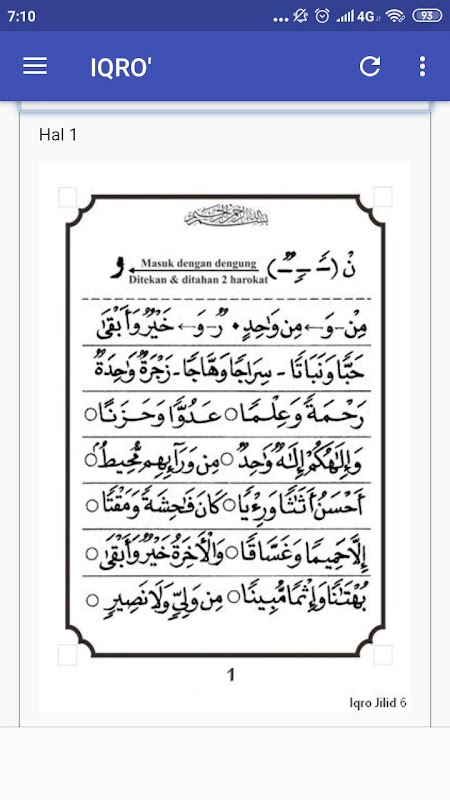 7:10
4G
93
IQRO'
Hal 1
نْ (ـًـ ـٍـ ـٌـ)
Masuk dengan dengung
Ditekan & ditahan 2 harokat
و
مِنْ-وَ← مِن وَّاحِدٍ • رٌ-وَ← خَيْرٌ وَّأَبْقَىٰ
حَبًّا وَّنَبَاتًا - سِرَاجًا وَّهَّاجًا - زَجْرَةٌ وَّاحِدَةٌ
رَحْمَةً وَّعِلْمًا ○ عَدُوًّا وَّحَزَنًا ○
وَإِلَٰهُكُمْ إِلَٰهٌ وَّاحِدٌ ○ مِن وَّرَآئِهِم مُّحِيطٌ ○
أَحْسَنُ أَثَاثًا وَّرِءْيًا ○ كَانَ فَاحِشَةً وَّمَقْتًا ○
إِلَّا حَمِيمًا وَّغَسَّاقًا ○ وَالْأَخِرَةُ خَيْرٌ وَّأَبْقَىٰ ○
بُهْتَانًا وَّإِثْمًا مُّبِينًا ○ مِن وَّلِيٍّ وَّلَا نَصِيرٍ ○
1
Iqro Jilid 6